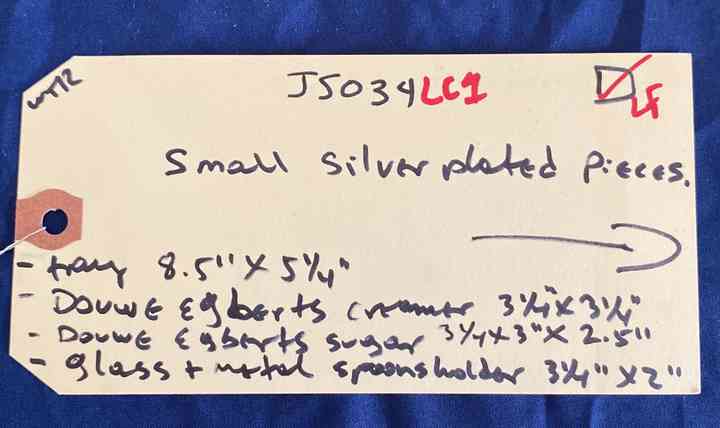 WTR
JS034LC1
LF
Small silver plated pieces.
- tray 8.5" x 5¼"
- Douwe Egberts creamer 3¼" x 3¼"
- Douwe Egberts sugar 3¼ x 3" x 2.5"
- glass + metal spoonsholder 3¼" x 2"